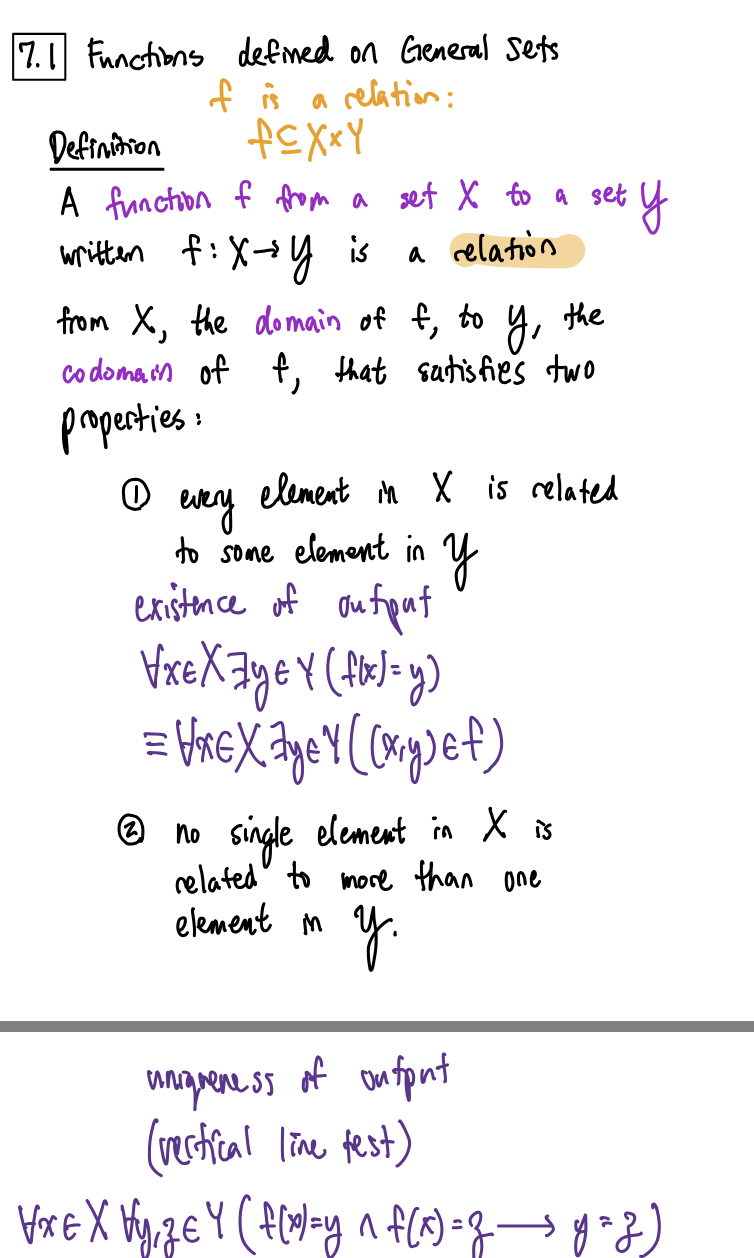 7.1 Functions defined on General Sets
f is a relation:
f ⊆ X×Y
Definition
A function f from a set X to a set Y
written f: X→Y is a relation
from X, the domain of f, to Y, the
codomain of f, that satisfies two
properties:
① every element in X is related
to some element in Y
existence of output
∀x∈X ∃y∈Y (f(x)=y)
≡ ∀x∈X ∃y∈Y ((x,y)∈f)
② no single element in X is
related to more than one
element in Y.
uniqueness of output
(vertical line test)
∀x∈X ∀y,z∈Y (f(x)=y ∧ f(x)=z → y=z)